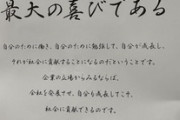 最大の喜びである
自分のために働き、自分のために勉強して、自分が成長し、
それが社会に貢献することになるのだということです。
企業の立場からみるならば、
会社を発展させ、自分も成長してこそ、
社会に貢献できるのです。